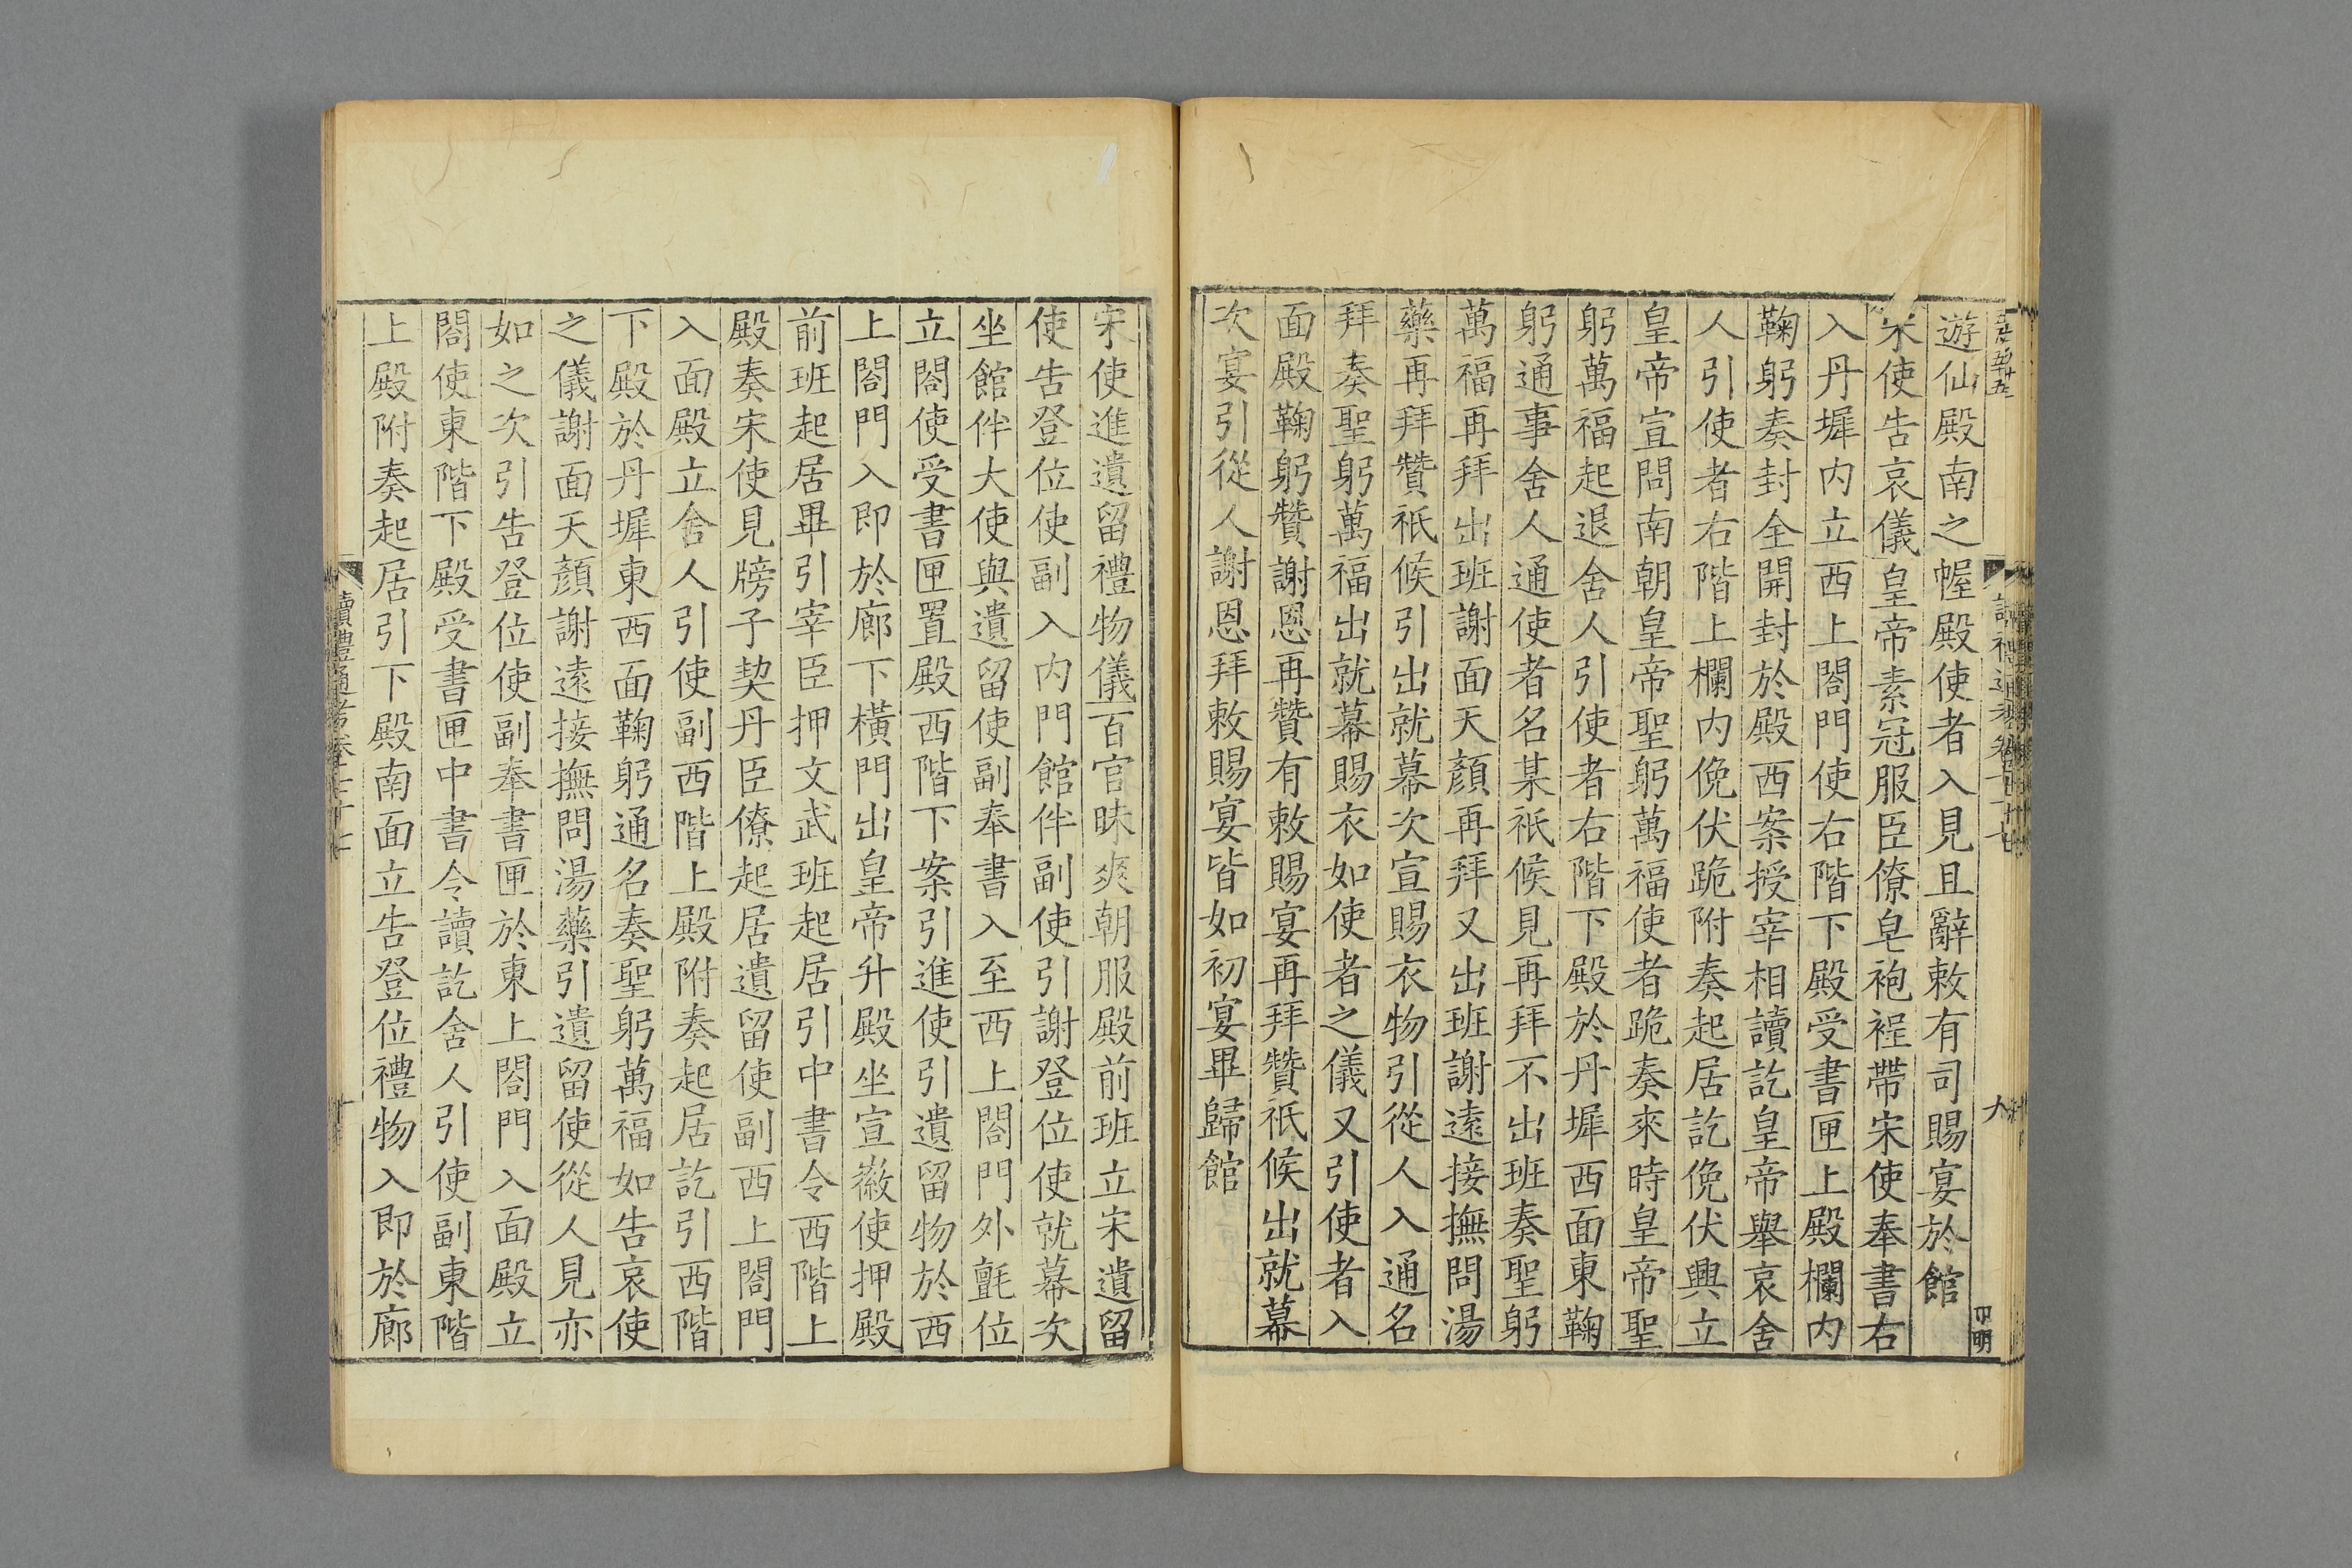 遊仙殿南之幄殿使者入見且辭敕有司賜宴於館
宋使告哀儀皇帝素冠服臣僚皂袍裎帶宋使奉書右
入丹墀内立西上閤門使右階下殿受書匣上殿欄内
鞠躬奏封全開封於殿西案授宰相讀訖皇帝舉哀舍
人引使者右階上欄内俛伏跪附奏起居訖俛伏興立
皇帝宣問南朝皇帝聖躬萬福使者跪奏來時皇帝聖
躬萬福起退舍人引使者右階下殿於丹墀西面東鞠
躬通事舍人通使者名某祇候見再拜不出班奏聖躬
萬福再拜出班謝面天顏再拜又出班謝遠接撫問湯
藥再拜贊祇候引出就幕次宣賜衣物引從人入通名
拜奏聖躬萬福出就幕賜衣如使者之儀又引使者入
面殿鞠躬贊謝恩再贊有敕賜宴再拜贊祇候出就幕
次宴引從人謝恩拜敕賜宴皆如初宴畢歸館
宋使進遺留禮物儀百官昧爽朝服殿前班立宋遺留
使告登位使副入内門館伴副使引謝登位使就幕次
坐館伴大使與遺留使副奉書入至西上閤門外氈位
立閤使受書匣置殿西階下案引進使引遺留物於西
上閤門入即於廊下橫門出皇帝升殿坐宣徽使押殿
前班起居畢引宰臣押文武班起居引中書令西階上
殿奏宋使見牓子契丹臣僚起居遺留使副西上閤門
入面殿立舍人引使副西階上殿附奏起居訖引西階
下殿於丹墀東西面鞠躬通名奏聖躬萬福如告哀使
之儀謝面天顏謝遠接撫問湯藥引遺留使從人見亦
如之次引告登位使副奉書匣於東上閤門入面殿立
閤使東階下殿受書匣中書令讀訖舍人引使副東階
上殿附奏起居引下殿南面立告登位禮物入即於廊
讀禮通考卷